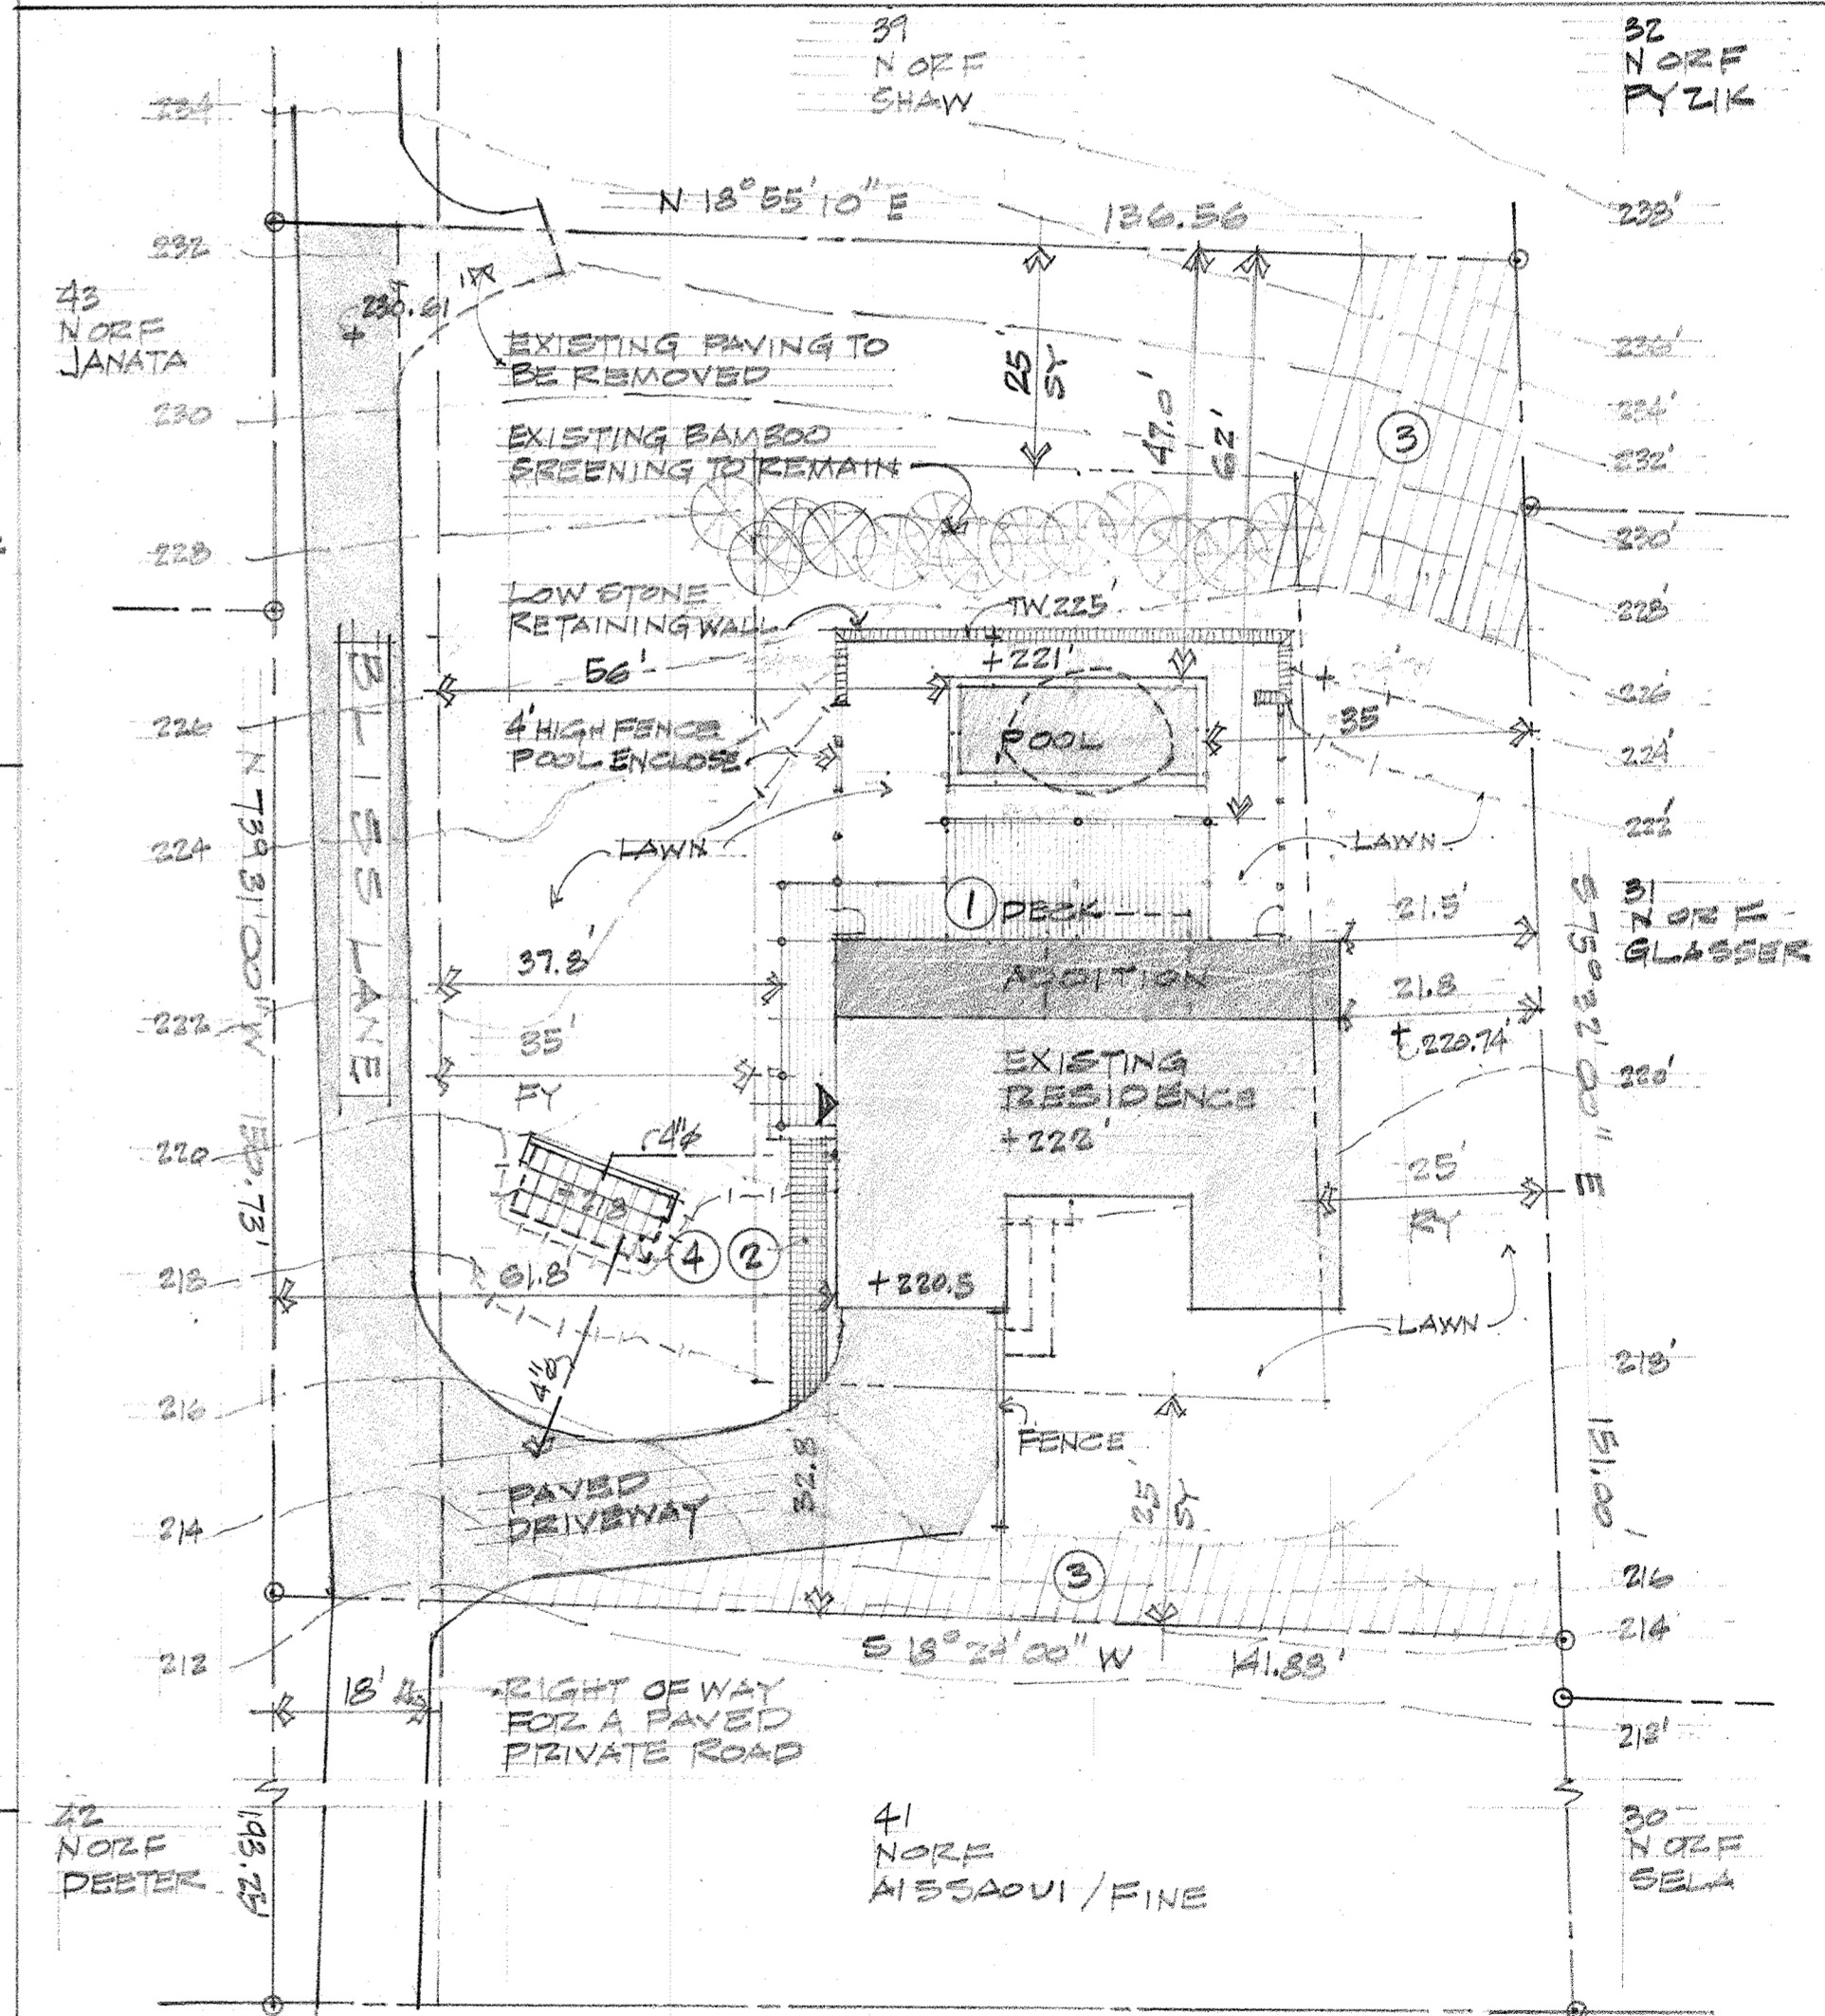 39
N OR F
SHAW
32
N OR F
PYZIK
234
N 18° 55' 10" E
136.56
238'
232
43
N OR F
JANATA
230.61
EXISTING PAVING TO
BE REMOVED
25'
SY
47.0'
62'
236'
234'
230
EXISTING BAMBOO
SREENING TO REMAIN
3
232'
230'
228
LOW STONE
RETAINING WALL
TW 225'
228'
56'
+221'
226'
226
4' HIGH FENCE
POOL ENCLOSE
POOL
35'
224'
BLISS LANE
N 73° 31' 00" W 150.73'
224
LAWN
LAWN
222'
1
DECK
21.5'
31
N OR F
GLASSER
S 75° 32' 00" E
151.00'
37.8'
ADDITION
21.8
222
35'
FY
EXISTING
RESIDENCE
+222'
+220.74'
220'
220
4"ø
25'
218
61.8'
4
2
+220.5
LAWN
218'
216
4"ø
FENCE
PAVED
DRIVEWAY
32.8'
25'
SY
214
3
216
214
212
S 18° 24' 00" W
141.88'
18'
RIGHT OF WAY
FOR A PAVED
PRIVATE ROAD
212'
42
N OR F
DEETER
193.25
41
N OR F
AISSAOUI / FINE
30
N OR F
SELA